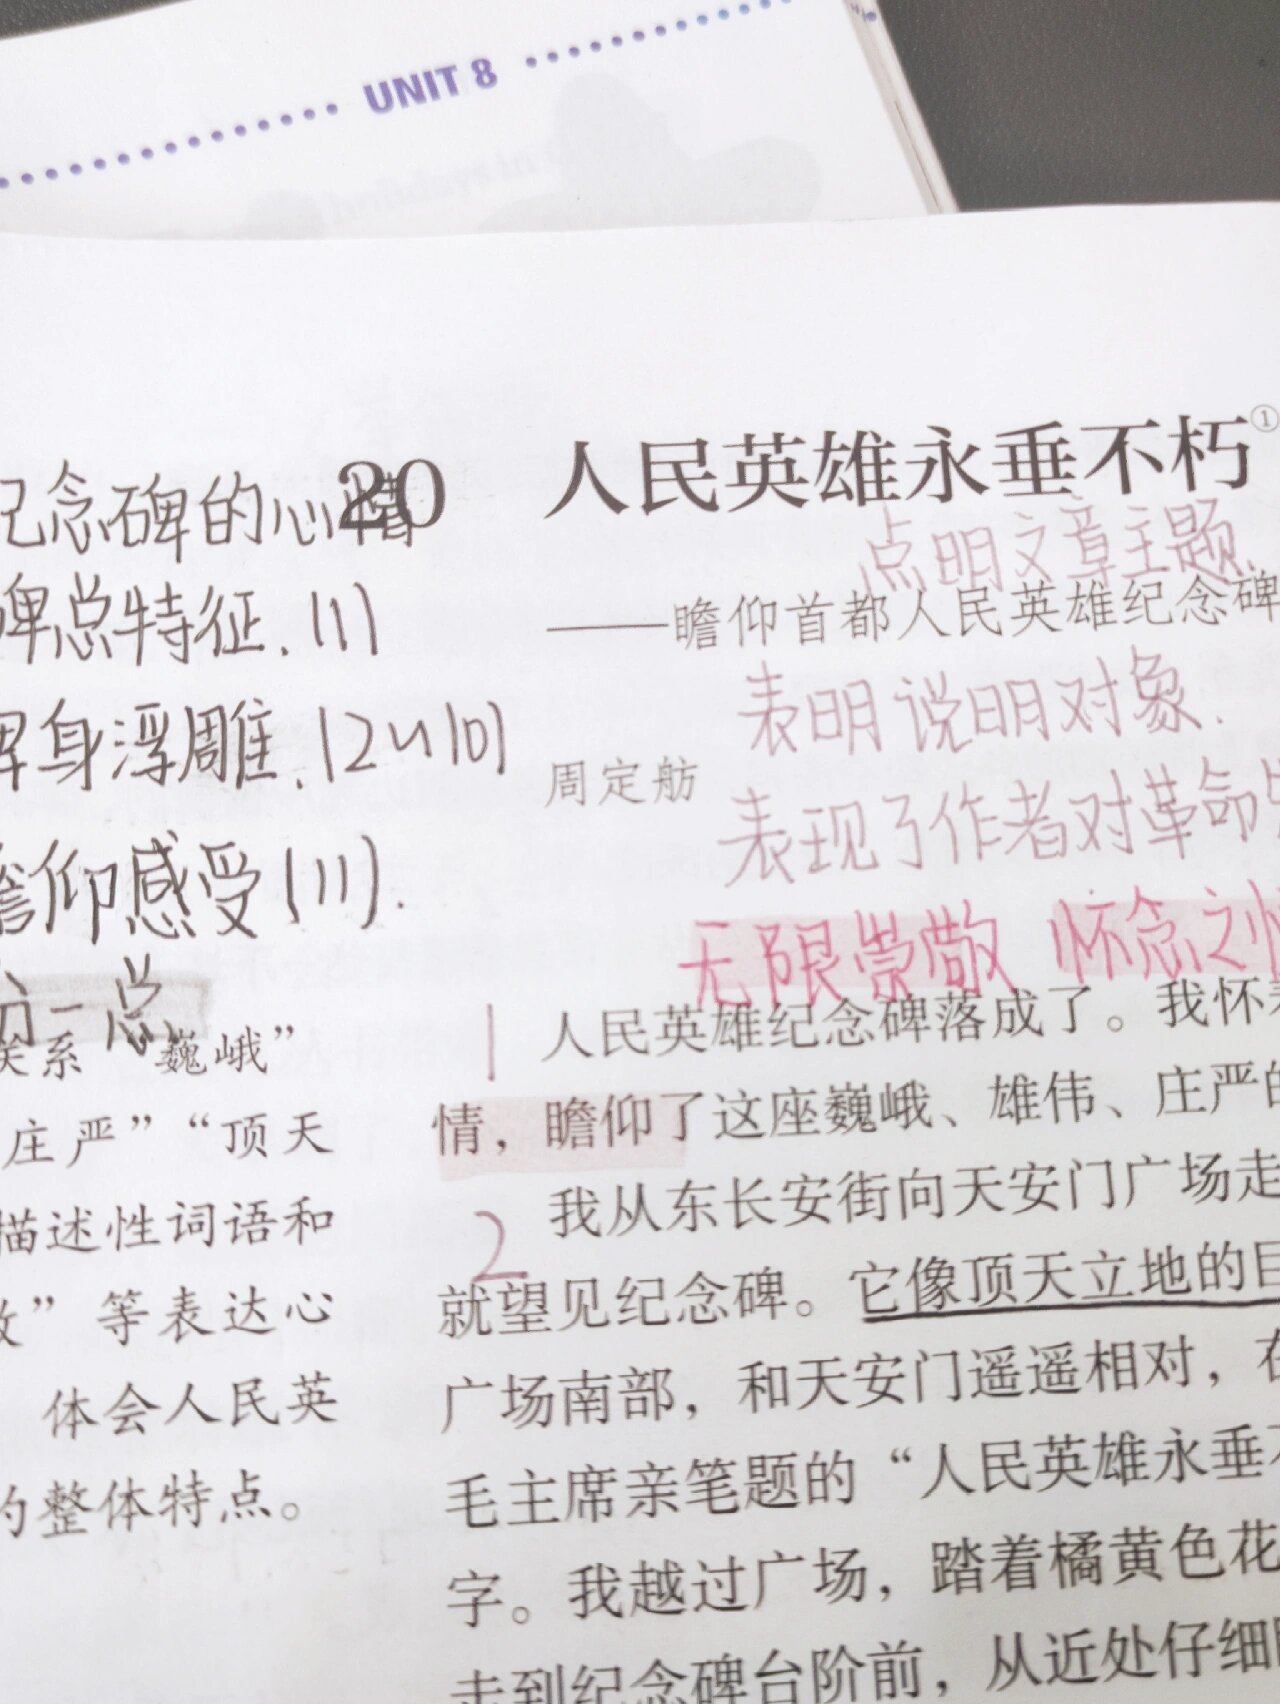 UNIT 8
20 人民英雄永垂不朽①
点明文章主题.
——瞻仰首都人民英雄纪念碑
表明说明对象.
周定舫
表现了作者对革命
无限崇敬 怀念之情
纪念碑的心情
碑总特征.(1)
碑身浮雕.(2~10)
瞻仰感受(11).
分一总
关系 “巍峨”
庄严”“顶天
描述性词语和
敬”等表达心
体会人民英
的整体特点。
1 人民英雄纪念碑落成了。我怀着
情，瞻仰了这座巍峨、雄伟、庄严的
2 我从东长安街向天安门广场走
就望见纪念碑。它像顶天立地的巨
广场南部，和天安门遥遥相对，在
毛主席亲笔题的“人民英雄永垂不
字。我越过广场，踏着橘黄色花
走到纪念碑台阶前，从近处仔细